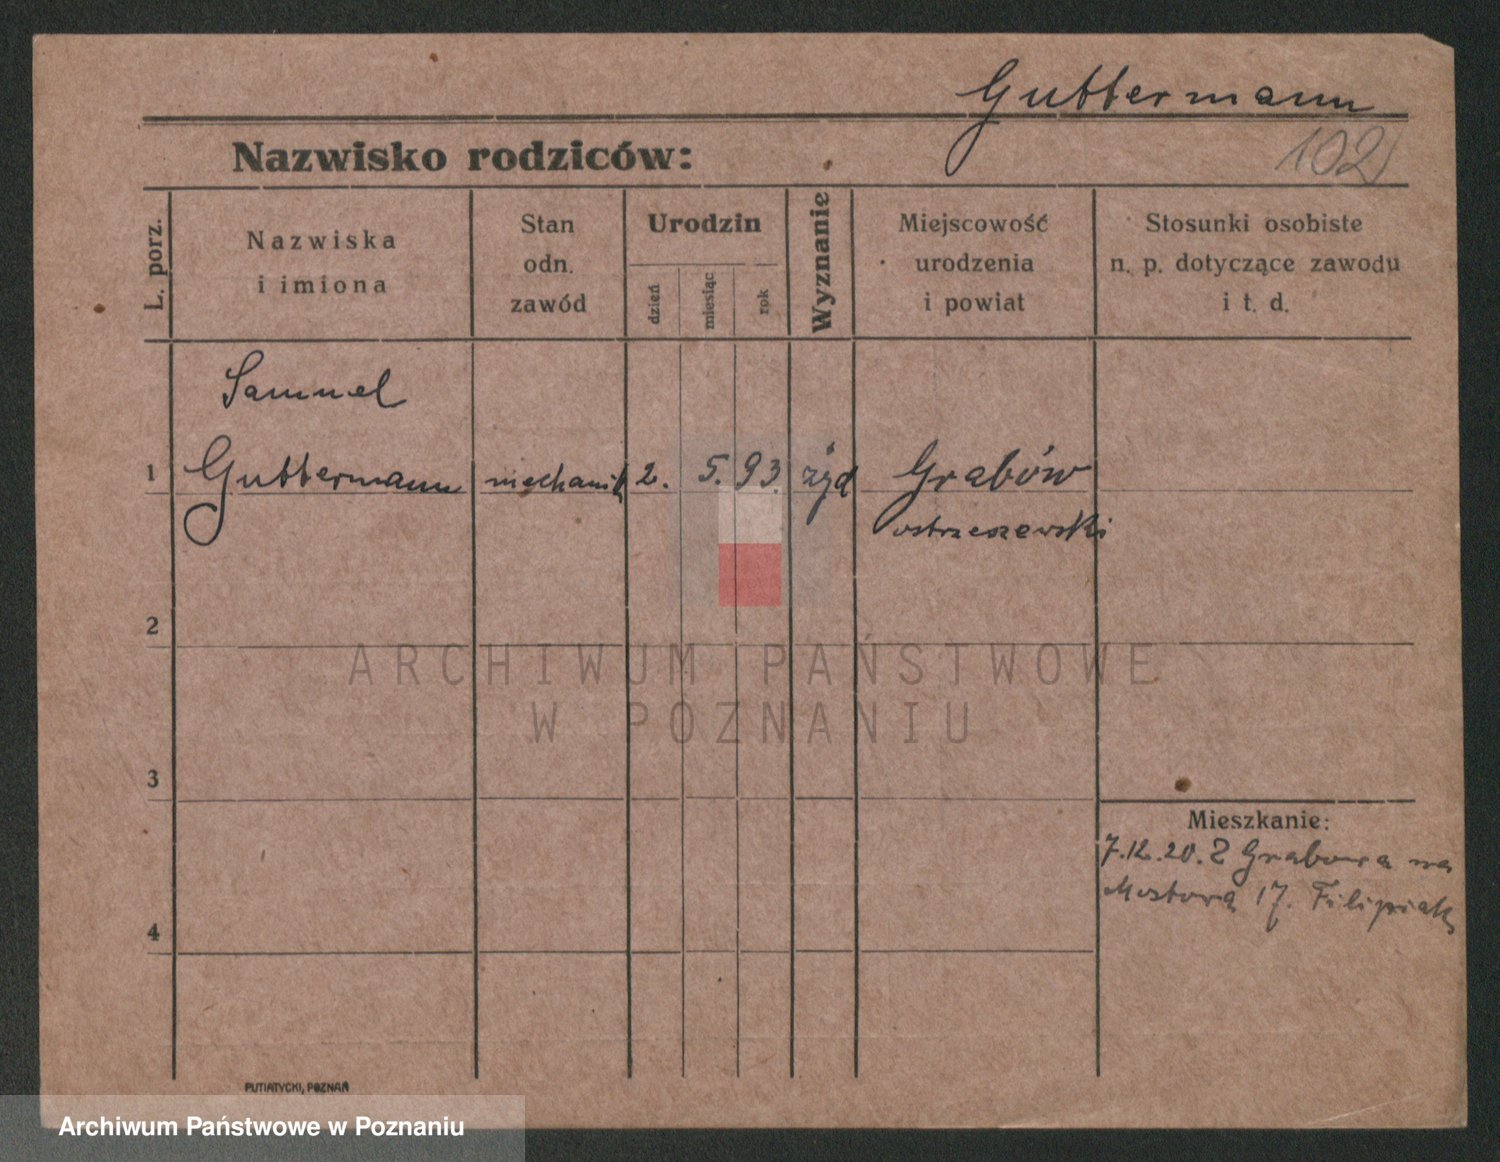 Guttermann
102
Nazwisko rodziców:
L. porz.
Nazwiska
i imiona
Stan
odn.
zawód
Urodzin
dzień
miesiąc
rok
Wyznanie
Miejscowość
urodzenia
i powiat
Stosunki osobiste
n. p. dotyczące zawodu
i t. d.
Samuel
1 Guttermann mechanik 2. 5. 93. żyd Grabów
ostrzeszewski
2
ARCHIWUM PAŃSTWOWE
W POZNANIU
3
Mieszkanie:
7.12.20. Z Grabowa na
Mostową 17. Filipiak
4
PUTIATYCKI, POZNAŃ
Archiwum Państwowe w Poznaniu